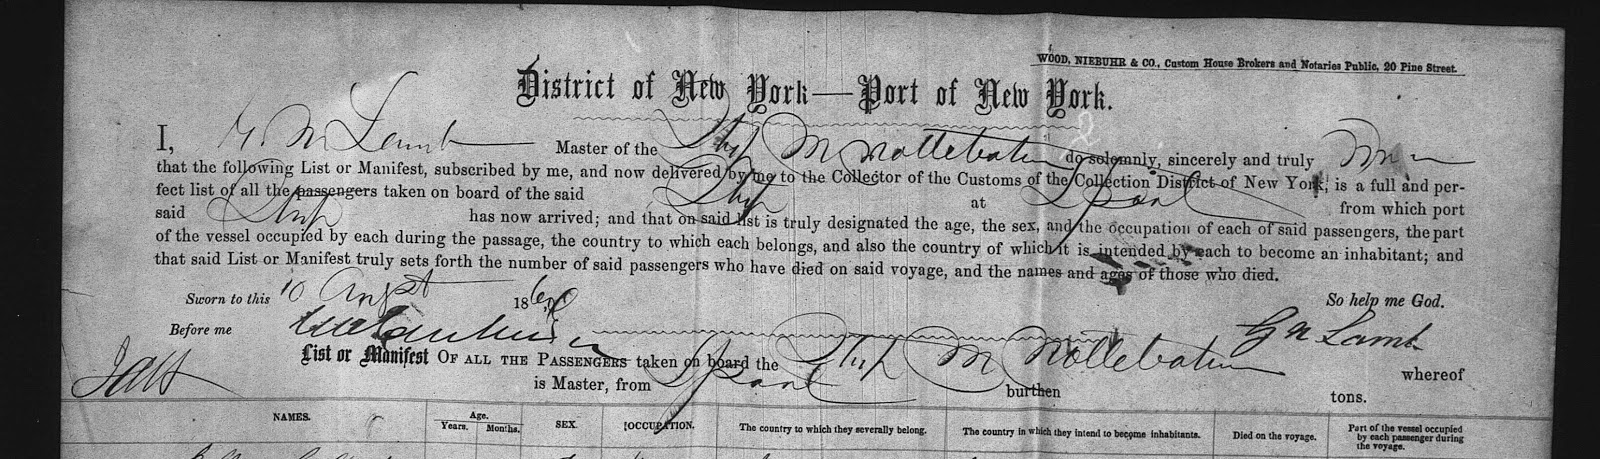 WOOD, NIEBUHR & CO., Custom House Brokers and Notaries Public, 20 Pine Street.
District of New York—Port of New York.
I, G. N. Lamb Master of the Ship M Nottebohm do solemnly, sincerely and truly
that the following List or Manifest, subscribed by me, and now delivered by me to the Collector of the Customs of the Collection District of New York, is a full and per-
fect list of all the passengers taken on board of the said Ship at from which port
said Ship has now arrived; and that on said list is truly designated the age, the sex, and the occupation of each of said passengers, the part
of the vessel occupied by each during the passage, the country to which each belongs, and also the country of which it is intended by each to become an inhabitant; and
that said List or Manifest truly sets forth the number of said passengers who have died on said voyage, and the names and ages of those who died.
Sworn to this 10 Augst 186 So help me God.
Before me G N Lamb
List or Manifest OF ALL THE PASSENGERS taken on board the Ship M Nottebohm whereof
is Master, from burthen tons.
NAMES. Age. Years. Months. SEX. OCCUPATION. The country to which they severally belong. The country in which they intend to become inhabitants. Died on the voyage. Part of the vessel occupied by each passenger during the voyage.